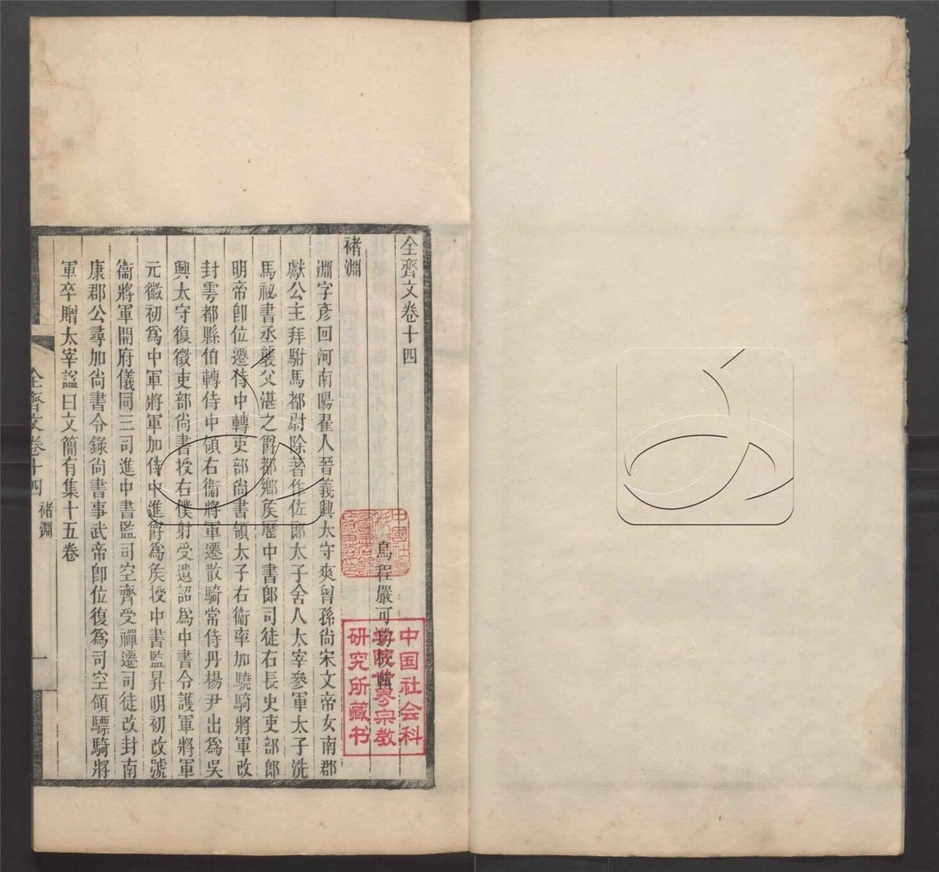 全齊文卷十四
烏程嚴可均校輯
褚淵
淵字彥回河南陽翟人晉義興太守爽曾孫尚宋文帝女南郡
獻公主拜駙馬都尉除著作佐郎太子舍人太宰參軍太子洗
馬祕書丞襲父湛之爵都鄉矦歷中書郎司徒右長史吏部郎
明帝卽位遷侍中轉吏部尚書領太子右衞率加驍騎將軍改
封雩都縣伯轉侍中領右衞將軍遷散騎常侍丹楊尹出爲吳
興太守復徵吏部尚書授右僕射受遺詔爲中書令護軍將軍
元徽初爲中軍將軍加侍中進爵爲矦授中書監昇明初改號
衞將軍開府儀同三司進中書監司空齊受禪遷司徒改封南
康郡公尋加尚書令錄尚書事武帝卽位復爲司空領驃騎將
軍卒贈太宰諡曰文簡有集十五卷
全齊文卷十四 褚淵
一
中国社会科
學院世界宗教
研究所藏书